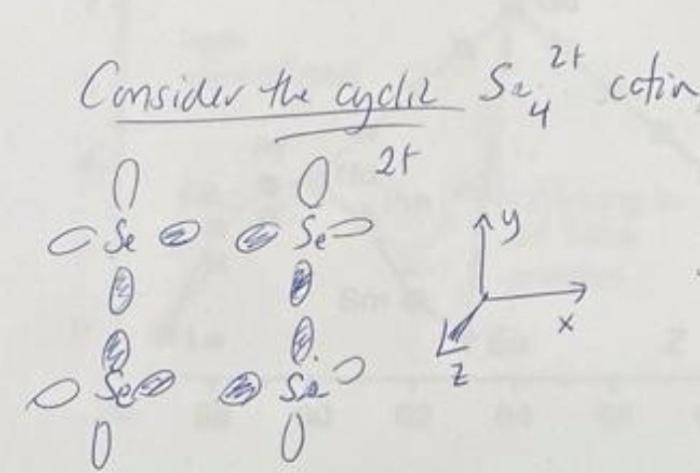 Consider the cyclic Se₄²⁺ cation
2+
Se Se
y
x
z
Se Se